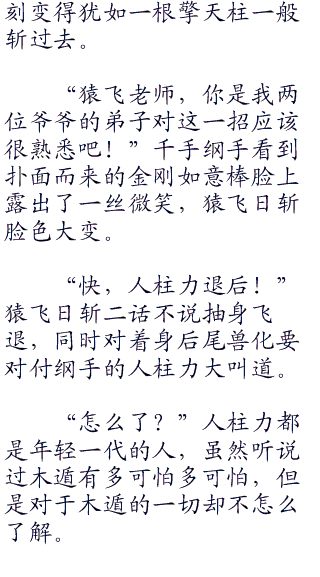 刻变得犹如一根擎天柱一般
斩过去。
“猿飞老师，你是我两
位爷爷的弟子对这一招应该
很熟悉吧！”千手纲手看到
扑面而来的金刚如意棒脸上
露出了一丝微笑，猿飞日斩
脸色大变。
“快，人柱力退后！”
猿飞日斩二话不说抽身飞
退，同时对着身后尾兽化要
对付纲手的人柱力大叫道。
“怎么了？”人柱力都
是年轻一代的人，虽然听说
过木遁有多可怕多可怕，但
是对于木遁的一切却不怎么
了解。